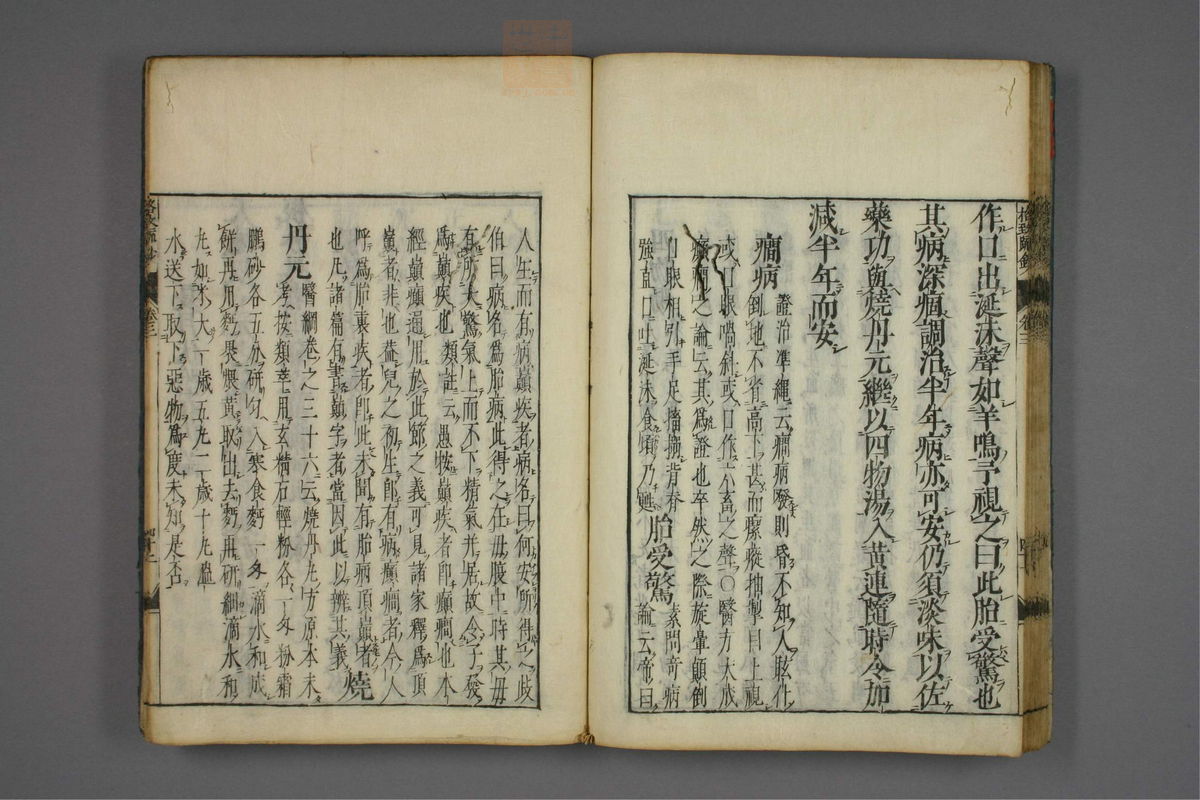 作口出涎沫聲如羊鳴予視之曰此胎受驚也
其病深痼調治半年病亦可安仍須淡味以佐
藥功與燒丹元繼以四物湯入黃連隨時令加
減半年而安
癇病 證治準繩云癇病發則昏不知人眩仆
倒地不省高下甚而瘛瘲抽掣目上視
或口眼喎斜或口作六畜之聲〇醫方大成
癲癇之論云其爲證也卒然之際旋暈顛倒
口眼相引手足搐搦背脊
強直口吐涎沫食頃乃甦 胎受驚 素問奇病
論云帝曰
人生而有病巔疾者病名曰何安所得之岐
伯曰病名爲胎病此得之在母腹中時其母
有所大驚氣上而不下精氣并居故令子發
爲巔疾也類註云愚按巔疾者卽癲癇也本
經巔癲通用於此節之義可見諸家釋爲頂
巔者非也蓋兒之初生卽有病癲癇者今人
呼爲胎裏疾者卽此未聞有胎病頂巔者
也凡諸篇有書巔字者當因此以辨其義 燒
丹元 醫綱卷之三十六云燒丹丸方原本未
考按類萃用玄精石輕粉各一錢粉霜
鵬砂各五分研勻入寒食麪一錢滴水和成
餅再用麪裹煨黃取出去麪再研細滴水和
丸如米大一歲五丸二歲十丸溫
水送下取下惡物爲度未知是否
卷三